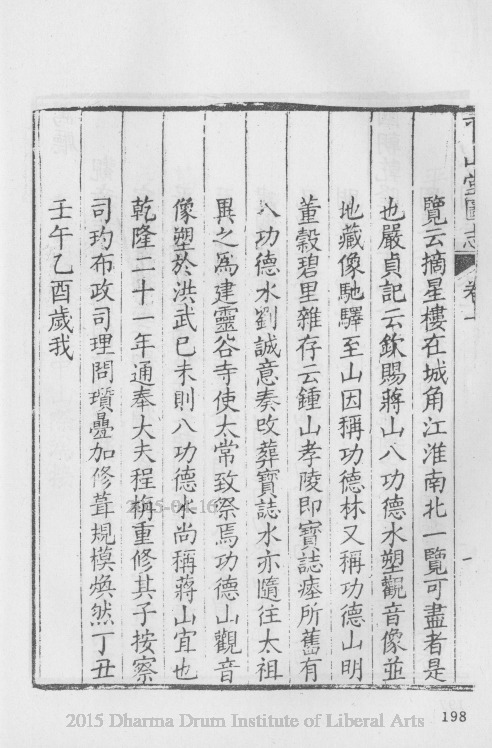 平山堂圖志 卷一
覽云摘星樓在城角江淮南北一覽可盡者是
也嚴貞記云欽賜蔣山八功德水塑觀音像並
地藏像馳驛至山因稱功德林又稱功德山明
董穀碧里雜存云鍾山孝陵即寶誌瘞所舊有
八功德水劉誠意奏改葬寶誌水亦隨往太祖
異之為建靈谷寺使太常致祭焉功德山觀音
像塑於洪武已未則八功德水尚稱蔣山宜也
乾隆二十一年通奉大夫程梅重修其子按察
司玓布政司理問瓚疊加修葺規模煥然丁丑
壬午乙酉歲我
2015-04-16
2015 Dharma Drum Institute of Liberal Arts
198